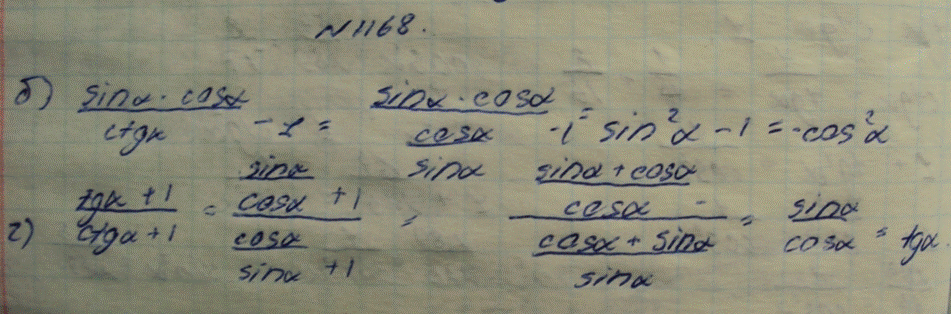 N 1168.
б) (sinα · cosα)/(ctgα) - 1 = (sinα · cosα)/(cosα/sinα) - 1 = sin²α - 1 = -cos²α
г) (tgα + 1)/(ctgα + 1) = (sinα/cosα + 1)/(cosα/sinα + 1) = ((sinα + cosα)/cosα)/((cosα + sinα)/sinα) = sinα/cosα = tgα